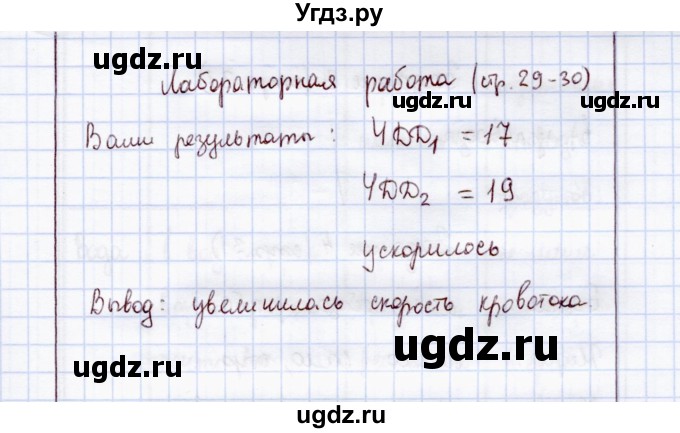 Угдз.ру
ugdz.ru ugdz.ru
Лабораторная работа (стр. 29-30)
ugdz.ru ugdz.ru
Ваши результаты: ЧДД1 = 17
ЧДД2 = 19
ugdz.ru ugdz.ru
ускорилось
Вывод: увеличилась скорость кровотока
ugdz.ru
ugdz.ru
ugdz.ru
ugdz.ru